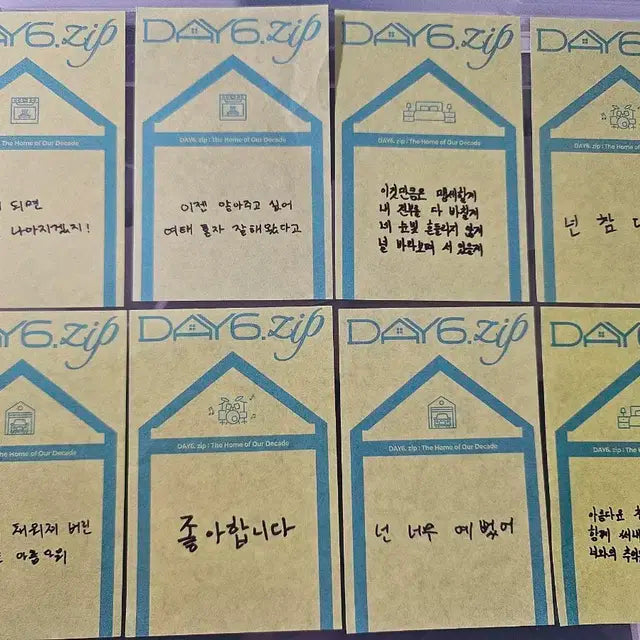 DAY6.zip
DAY6.zip : The Home of Our Decade
되면
나아지겠지!
DAY6.zip
DAY6.zip : The Home of Our Decade
이젠 말해주고 싶어
여태 혼자 잘해왔다고
DAY6.zip
DAY6.zip : The Home of Our Decade
이것만큼은 맹세할게
내 전부를 다 바칠게
네 눈빛 흔들리지 않게
널 바라보며 서 있을게
DAY6
DAY6.zip : The Home of Our
넌 참
DAY6.zip
DAY6.zip : The Home of Our Decade
채워져 버린
아픔 위
DAY6.zip
DAY6.zip : The Home of Our Decade
좋아합니다
DAY6.zip
DAY6.zip : The Home of Our Decade
넌 너무 예뻤어
DAY6
DAY6.zip : The Home of Our
아름다운
함께 써내
너와의 추억